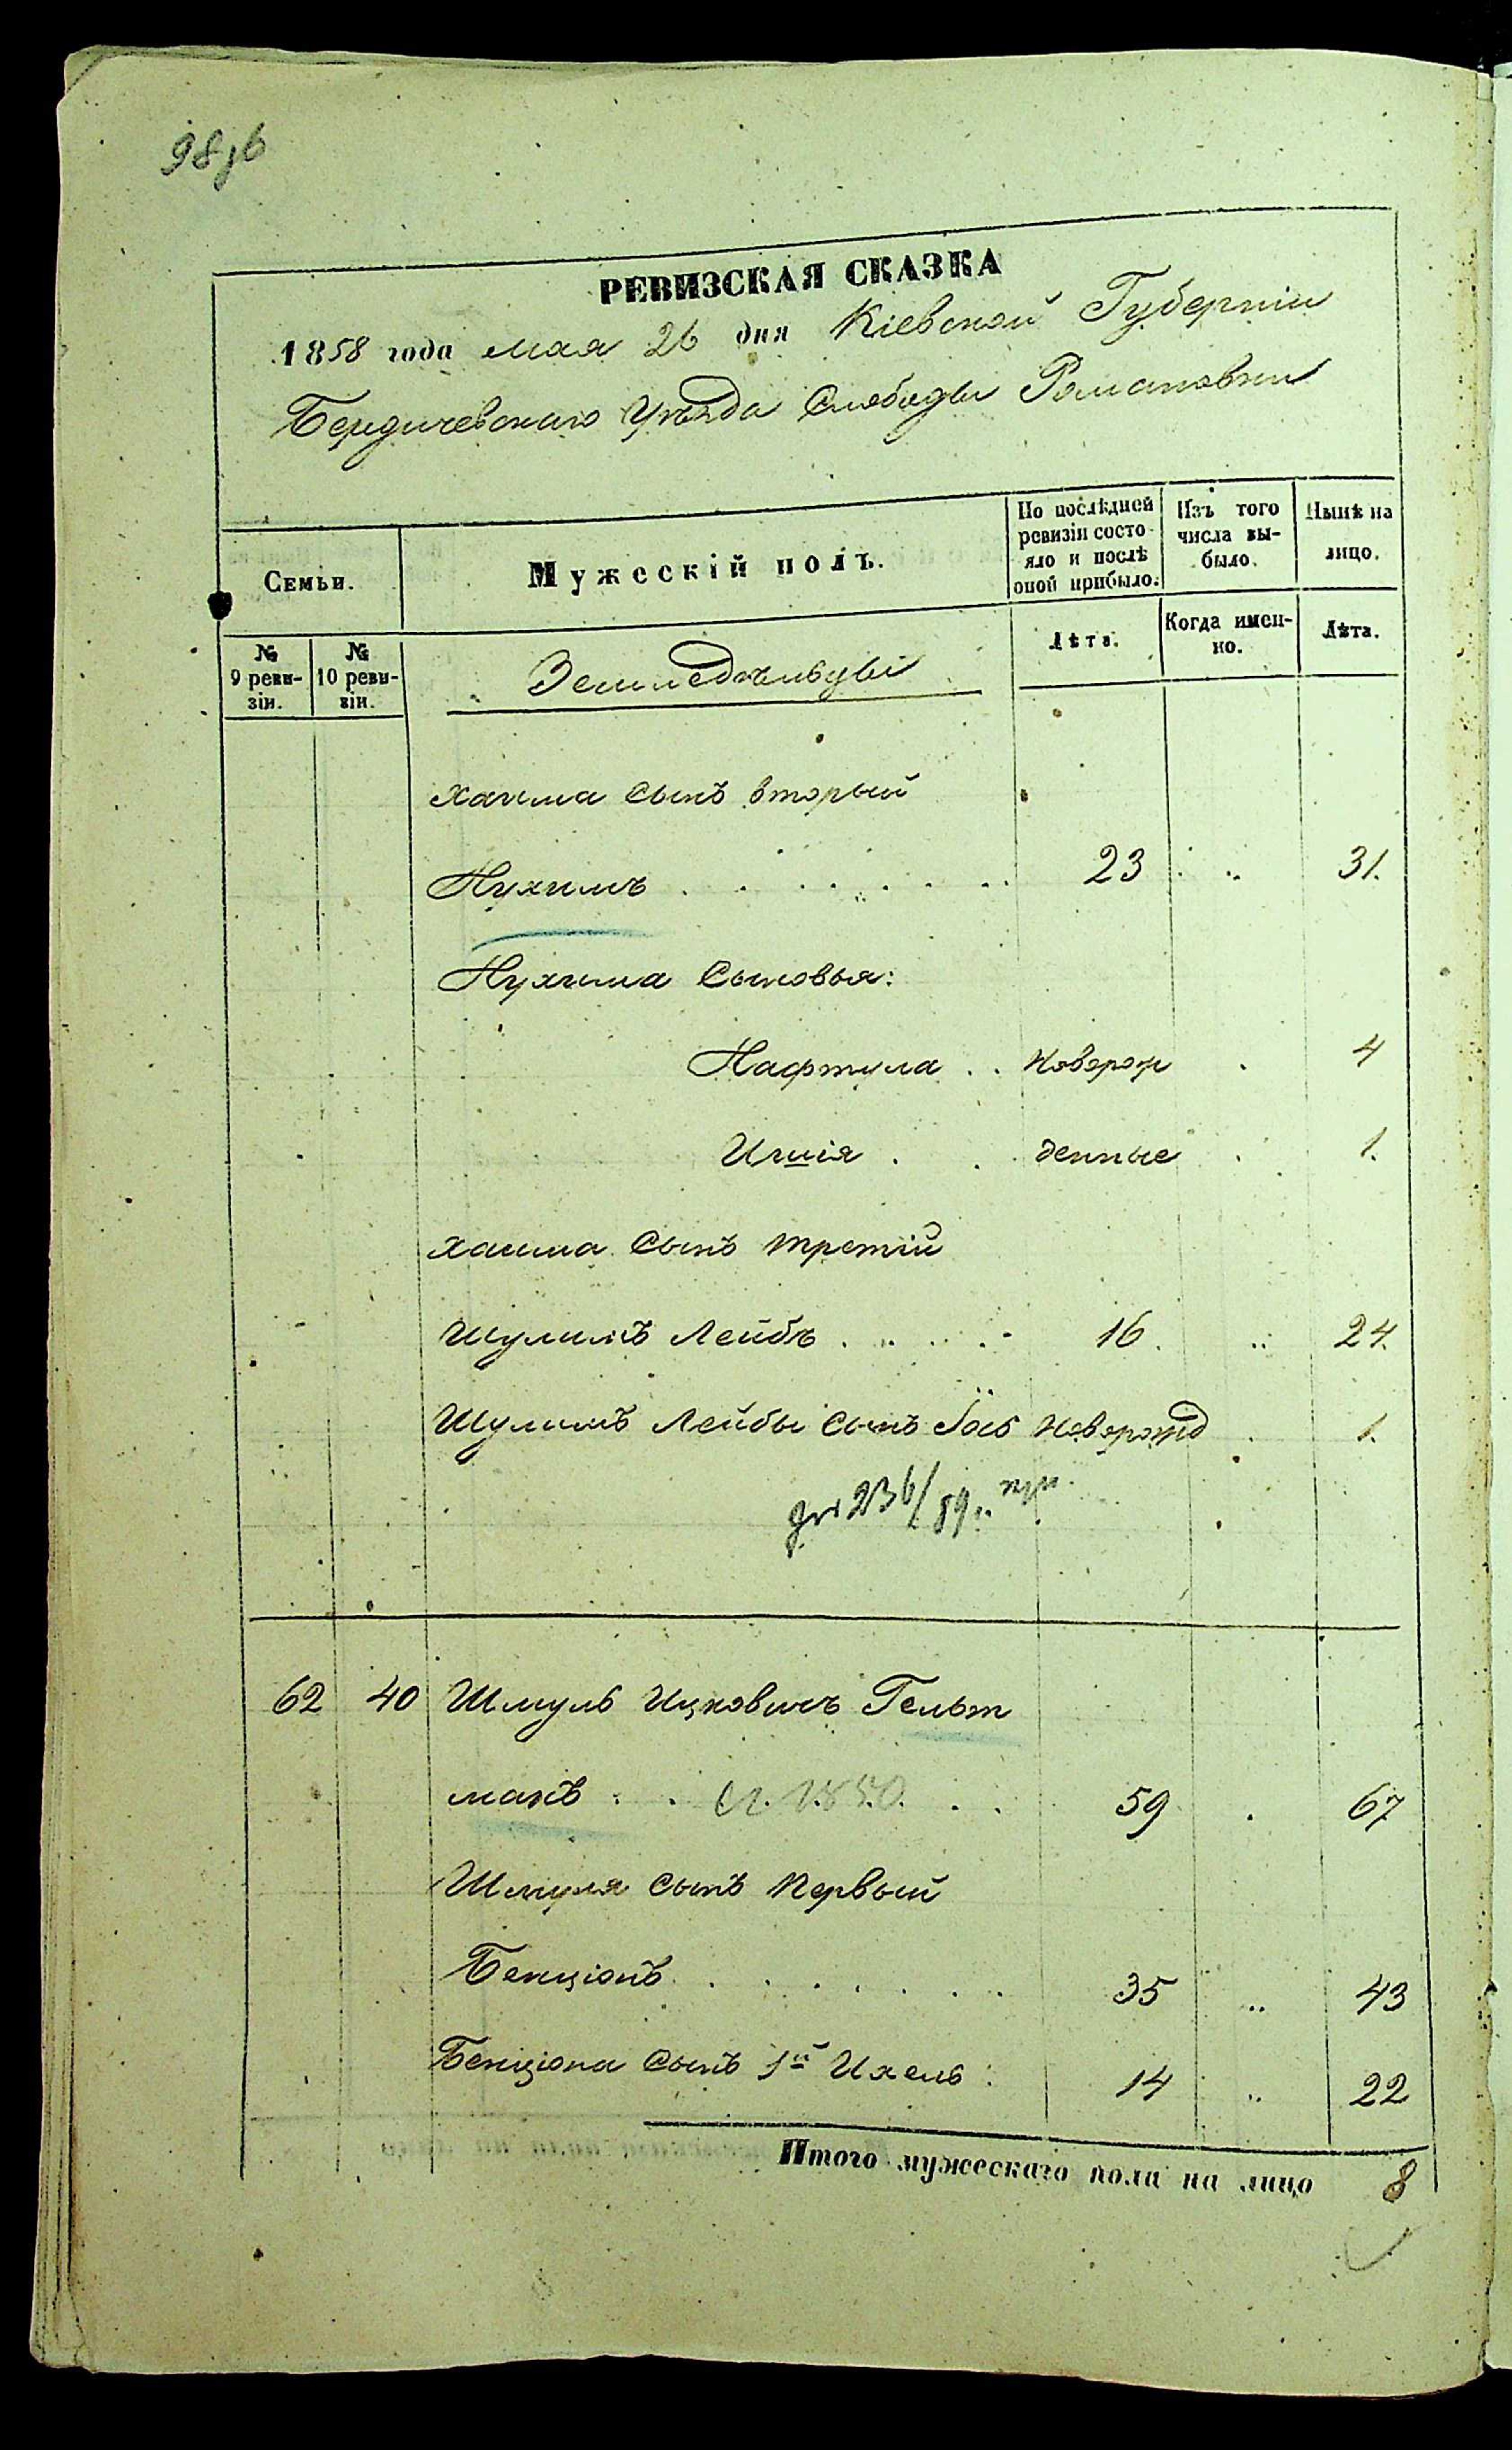 98
РЕВИЗСКАЯ СКАЗКА
1858 года мая 26 дня Кіевской Губерніи
Бердичевскаго Уѣзда Слободы Романовки
Семьи.
Мужескій полъ.
По послѣдней ревизіи состояло и послѣ оной прибыло.
Изъ того числа выбыло.
Нынѣ на лицо.
№ 9 ревизіи.
№ 10 ревизіи.
Земледѣльцы
Лѣта.
Когда именно.
Лѣта.
Хаима сынъ вторый
Нухимъ 23 31.
Нухима Сыновья:
Нафтула Неворож 4
Ишія денные 1.
Хаима Сынъ третій
Шулимъ Лейбъ 16. 24.
Шулимъ Лейбы Сынъ Іось Неворожд 1.
236/59
62 40 Шмуль Ицковичъ Гельт
манъ 1850. 59 67
Шмуля Сынъ Первый
Бенціонъ 35 43
Бенціона Сынъ 1й Ихель 14 22
Итого мужескаго пола на лицо 8